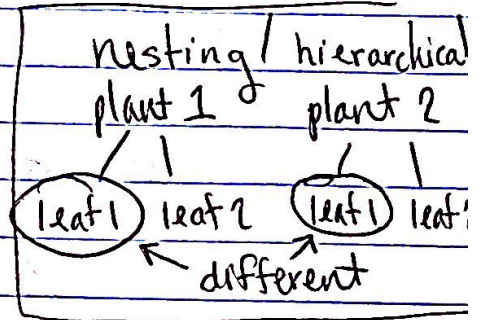 nesting / hierarchical
plant 1 plant 2
leaf 1 leaf 2 leaf 1 leaf
different